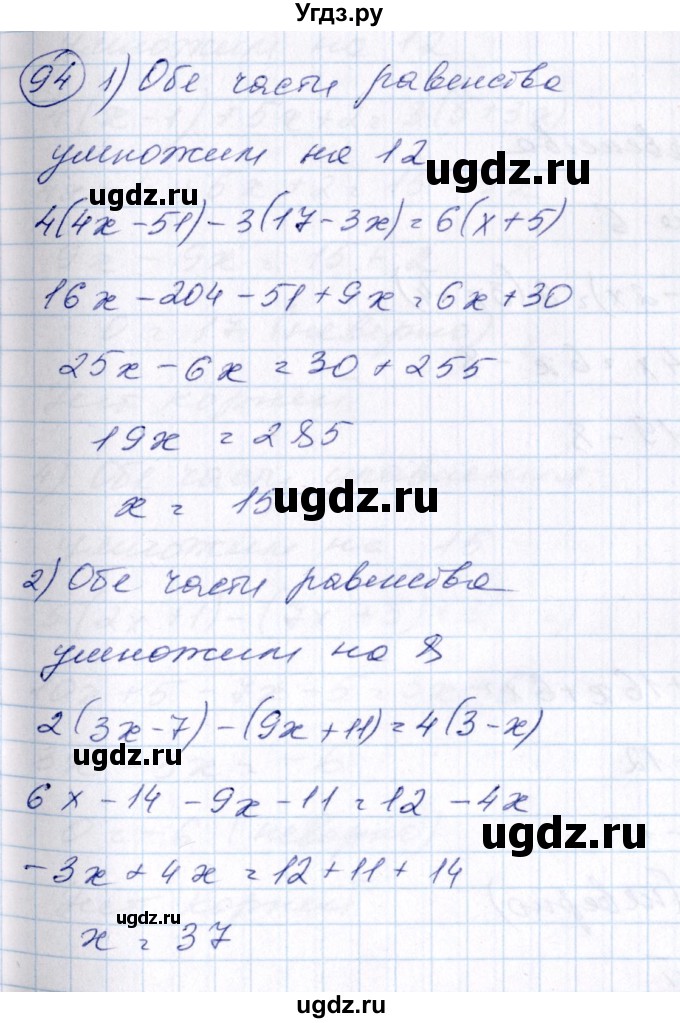 Угдз.ру
94 1) Обе части равенства
умножим на 12
ugdz.ru
ugdz.ru
4(4x-51)-3(17-3x)=6(x+5)
16x-204-51+9x=6x+30
ugdz.ru
25x-6x=30+255
19x=285
x=15
ugdz.ru
2) Обе части равенства
умножим на 8
ugdz.ru
2(3x-7)-(9x+11)=4(3-x)
6x-14-9x-11=12-4x
ugdz.ru
-3x+4x=12+11+14
ugdz.ru
x=37
ugdz.ru